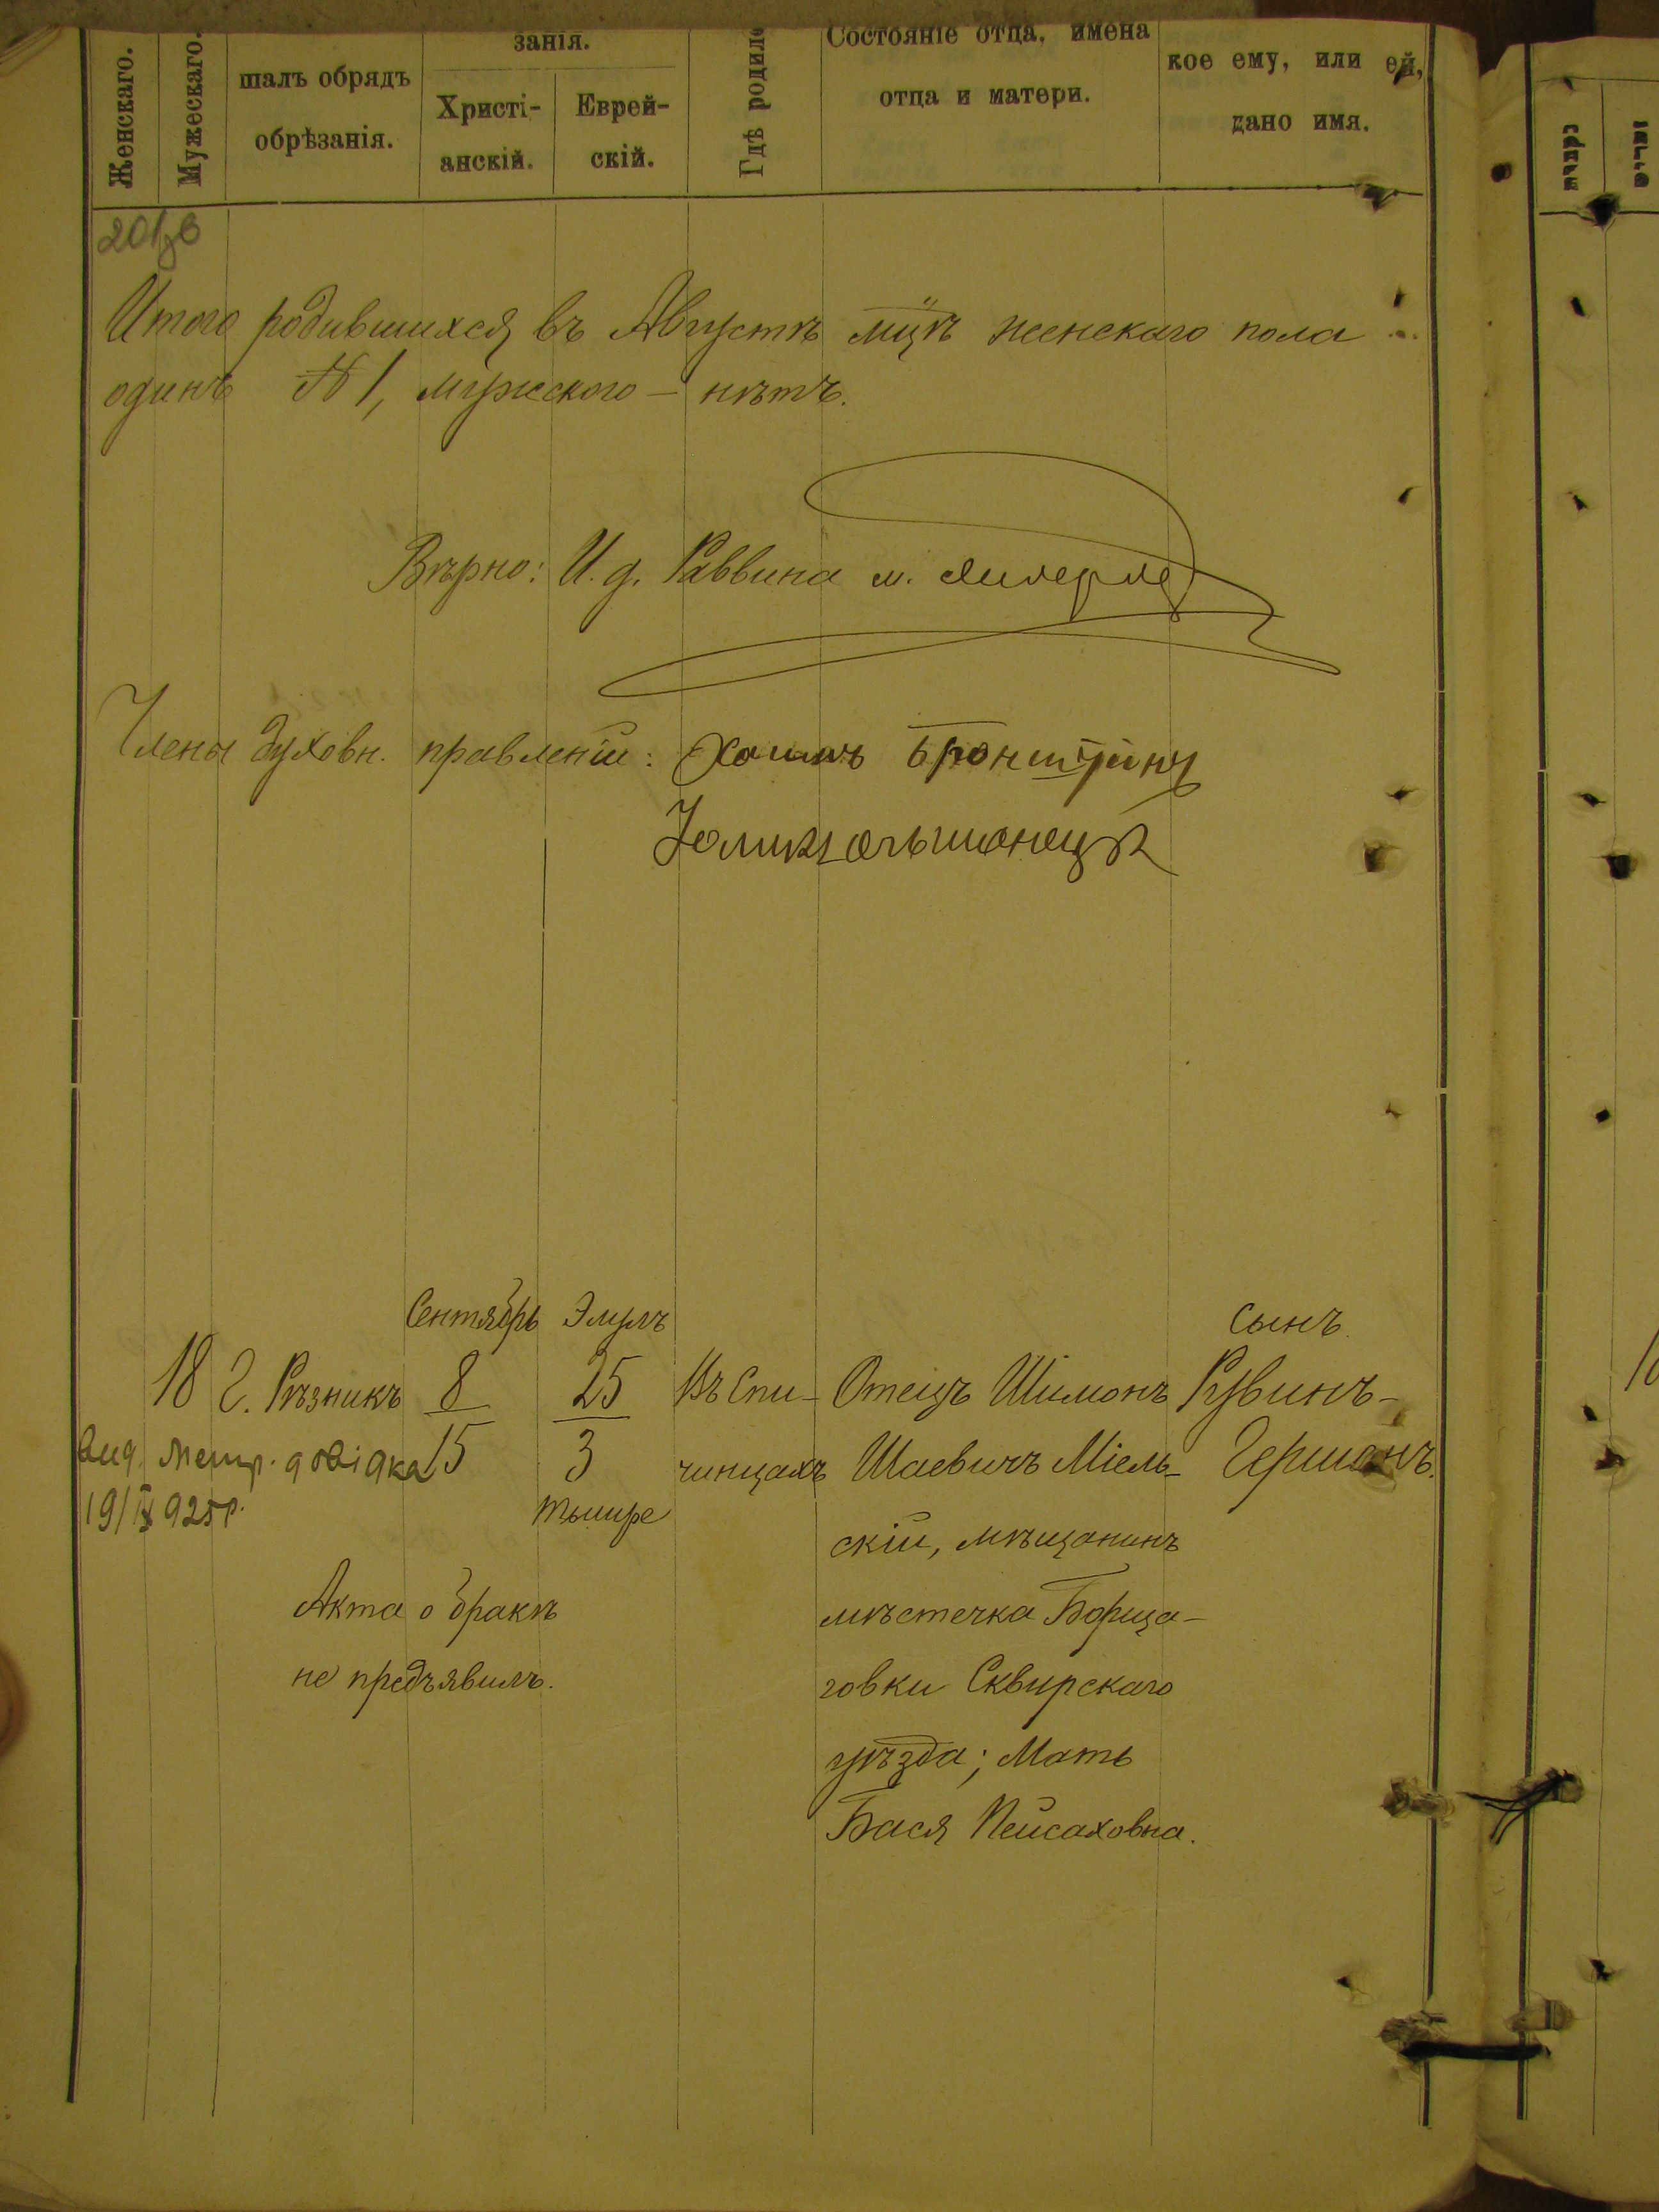 Женскаго.
Мужескаго.
шалъ обрядъ
обрѣзанія.
занія.
Христі-
анскій.
Еврей-
скій.
Гдѣ родил
Состояніе отца, имена
отца и матери.
кое ему, или ей,
дано имя.
Итого родившихся въ Августѣ мцѣ женскаго пола
одинъ № 1, мужского — нѣтъ.
Вѣрно: И. д. Раввина м.
Члены Духовн. правленія: Хаимъ Бронштейнъ
Сентябрь Элулъ сынъ
18 Г. Рѣзникъ 8 25 Въ Спи- Отецъ Шимонъ Рувинъ-
Вид. метр. довідка 15 3 чинцахъ Шаевичъ Міель- Гершонъ.
19/IX 925 р. тышре
скій, мѣщанинъ
Акта о бракѣ мѣстечка Борща-
не предъявилъ. говки Сквирскаго
уѣзда; Мать
Бася Пейсаховна.